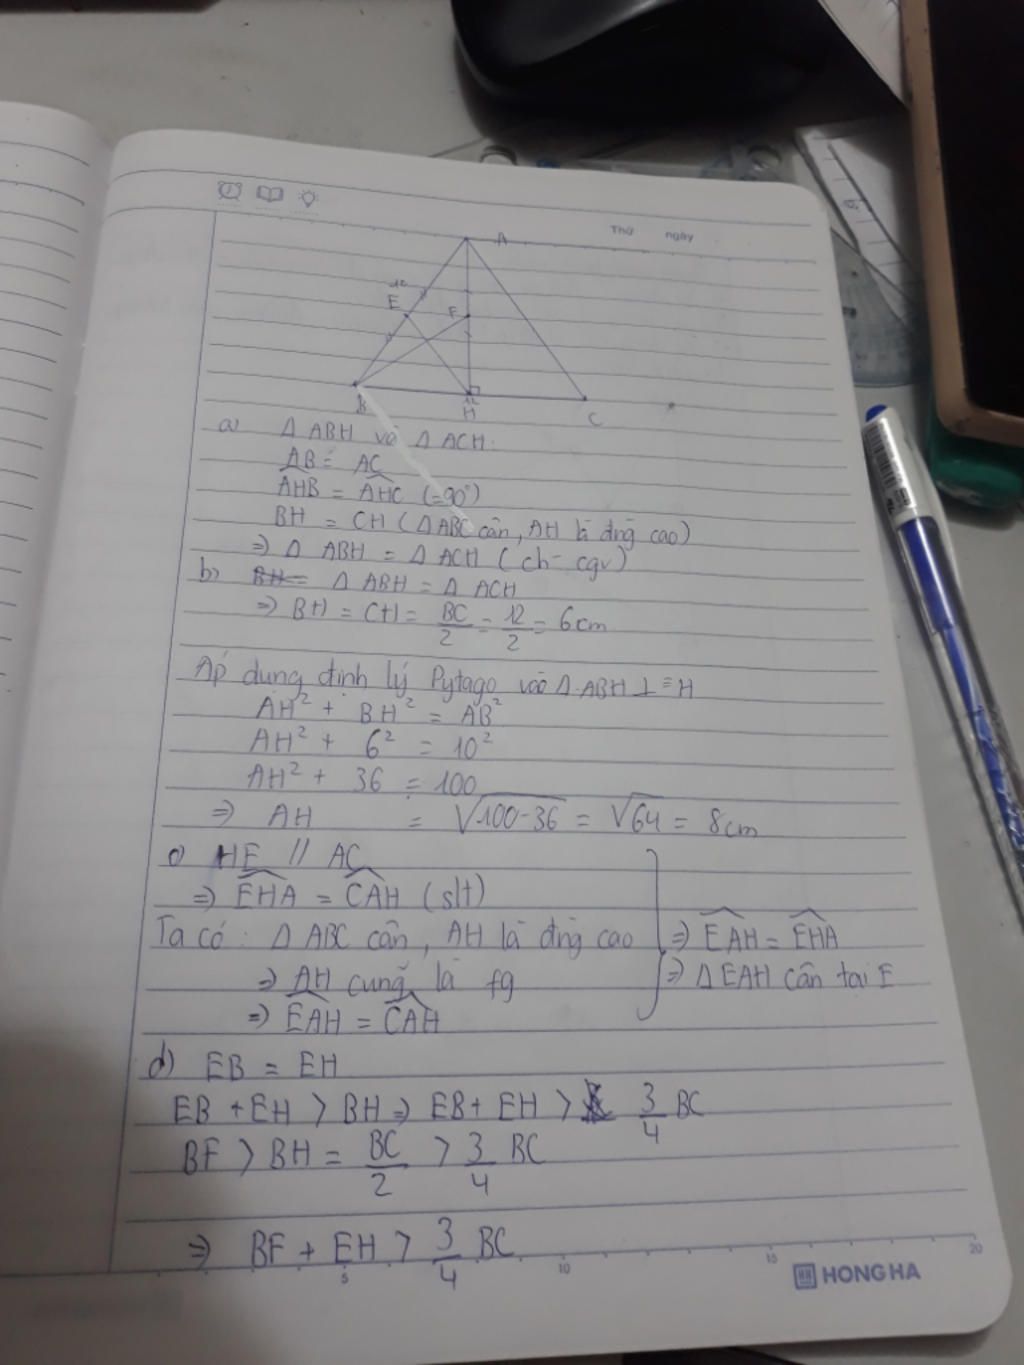 Thứ ngày
A
10
E
F
B
12
H
C
a) Δ ABH và Δ ACH:
AB = AC
AHB = AHC (=90°)
BH = CH (Δ ABC cân, AH là đng cao)
=> Δ ABH = Δ ACH (ch - cgv)
b) BH = Δ ABH = Δ ACH
=> BH = CH = BC/2 = 12/2 = 6cm
Áp dụng định lý Pytago vào Δ ABH ⊥ ≡ H
AH² + BH² = AB²
AH² + 6² = 10²
AH² + 36 = 100
=> AH = √100-36 = √64 = 8cm
c) HE // AC
=> EHA = CAH (slt)
Ta có: Δ ABC cân, AH là đng cao => EAH = EHA
=> AH cũng là fg => Δ EAH cân tại E
=> EAH = CAH
d) EB = EH
EB + EH > BH => EB + EH > 3/4 BC
BF > BH = BC/2 > 3/4 BC
=> BF + EH > 3/4 BC
5 10 15 20
HONG HA